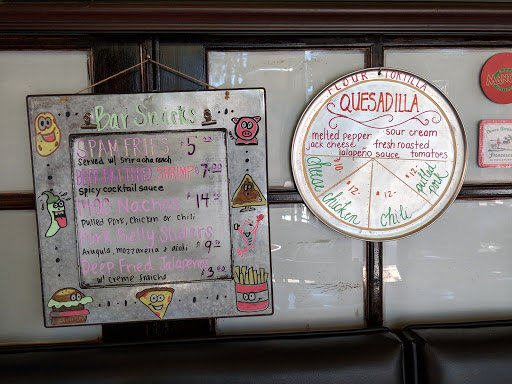 Bar Snacks
SPAM FRIES $5
Served w/ Sriracha
BEER BATTERED SHRIMPS 7.00
Spicy cocktail sauce
Nachos $14
Pulled Pork, Chicken or Chili
Pork Belly Sliders
Arugula, mozzarella & aioli $9
Deep Fried Jalapenos
w/ creme $3
FLOUR TORTILLA
QUESADILLA
melted pepper jack cheese
sour cream
fresh roasted
jalapeño sauce
tomatoes
cheese $10
chicken $12
chili $12-
pulled pork $12-